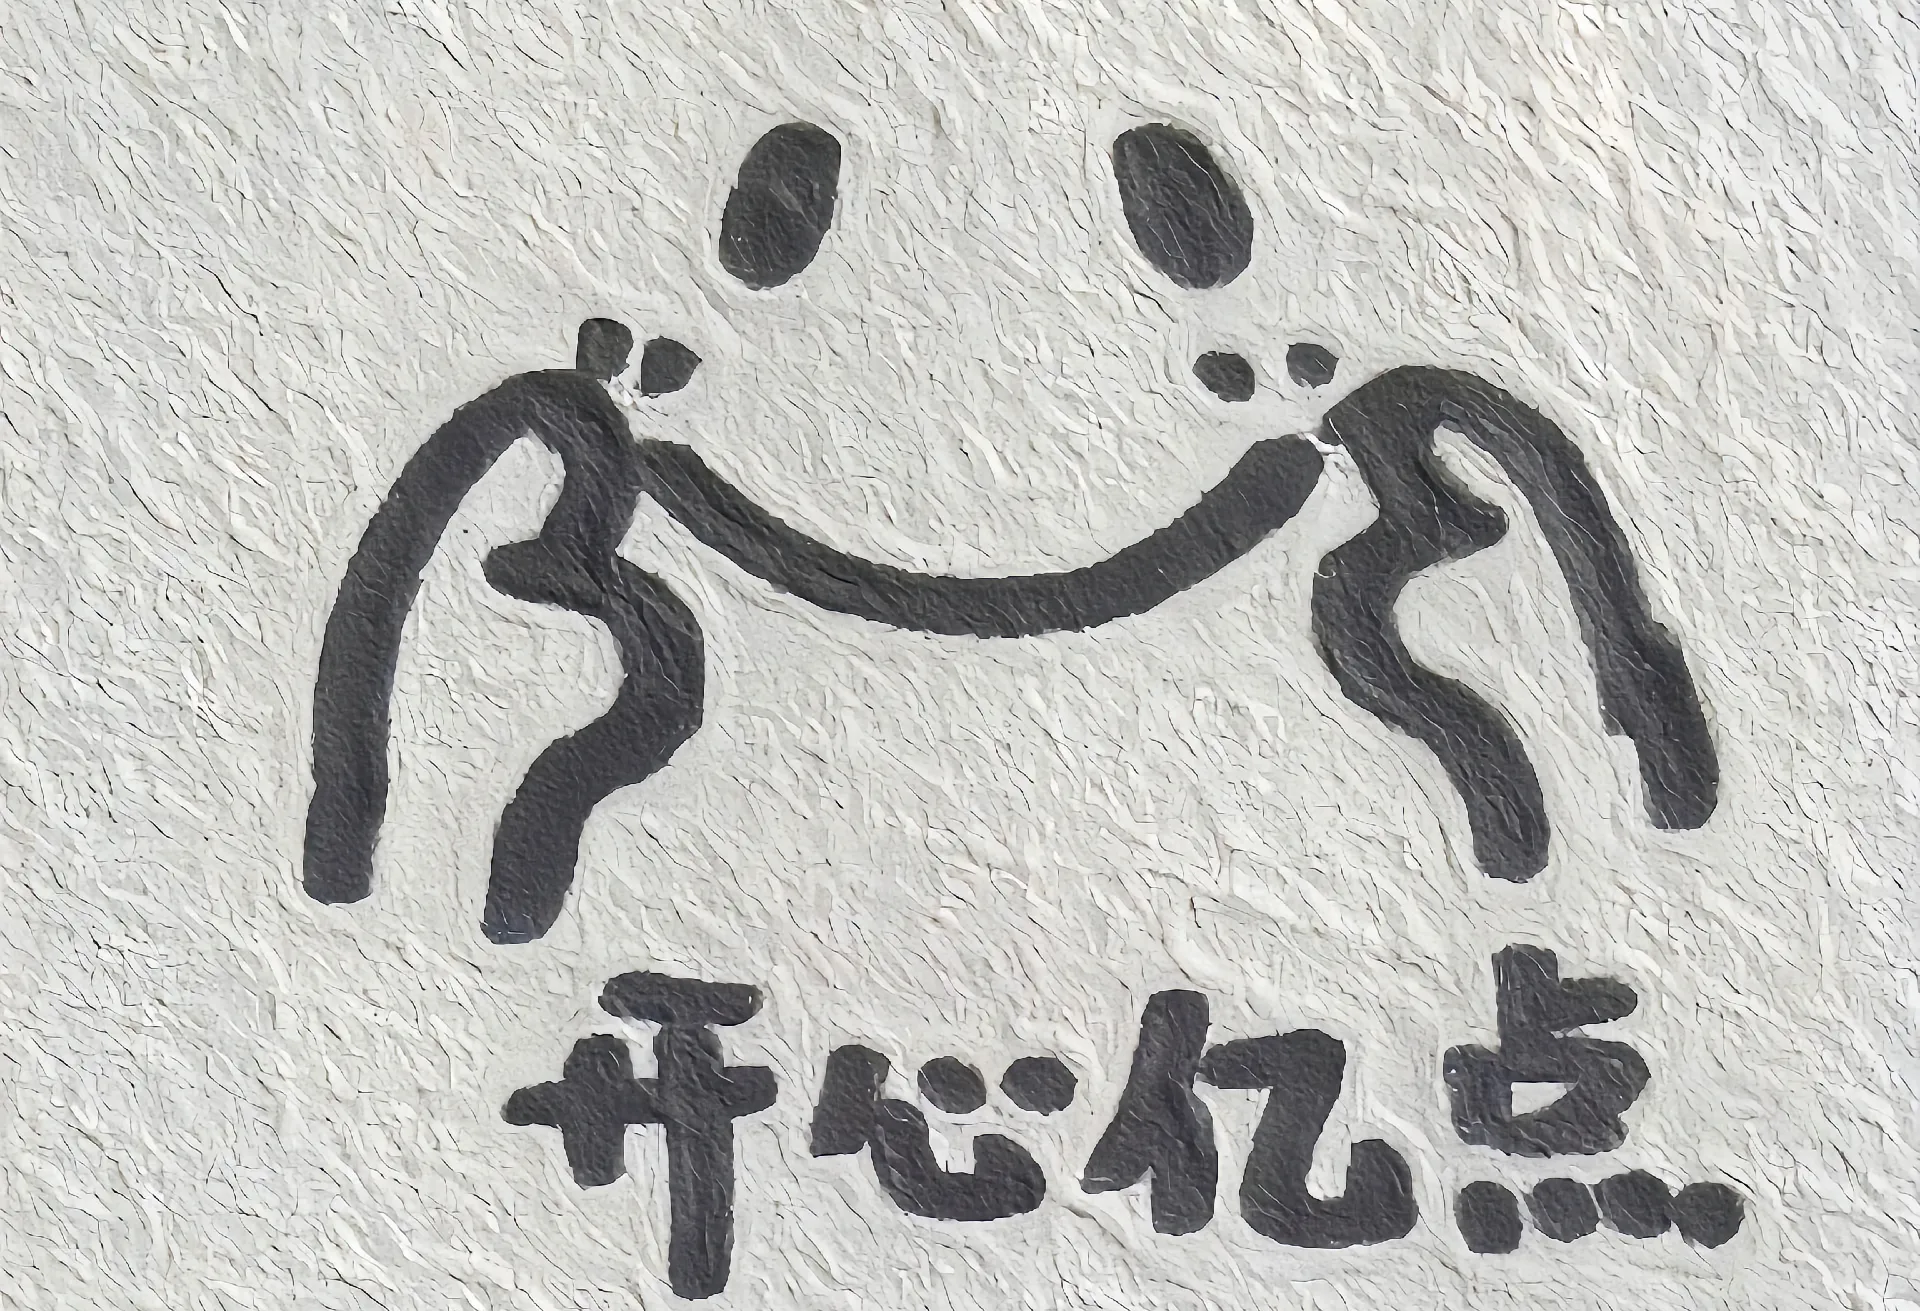 开心亿点